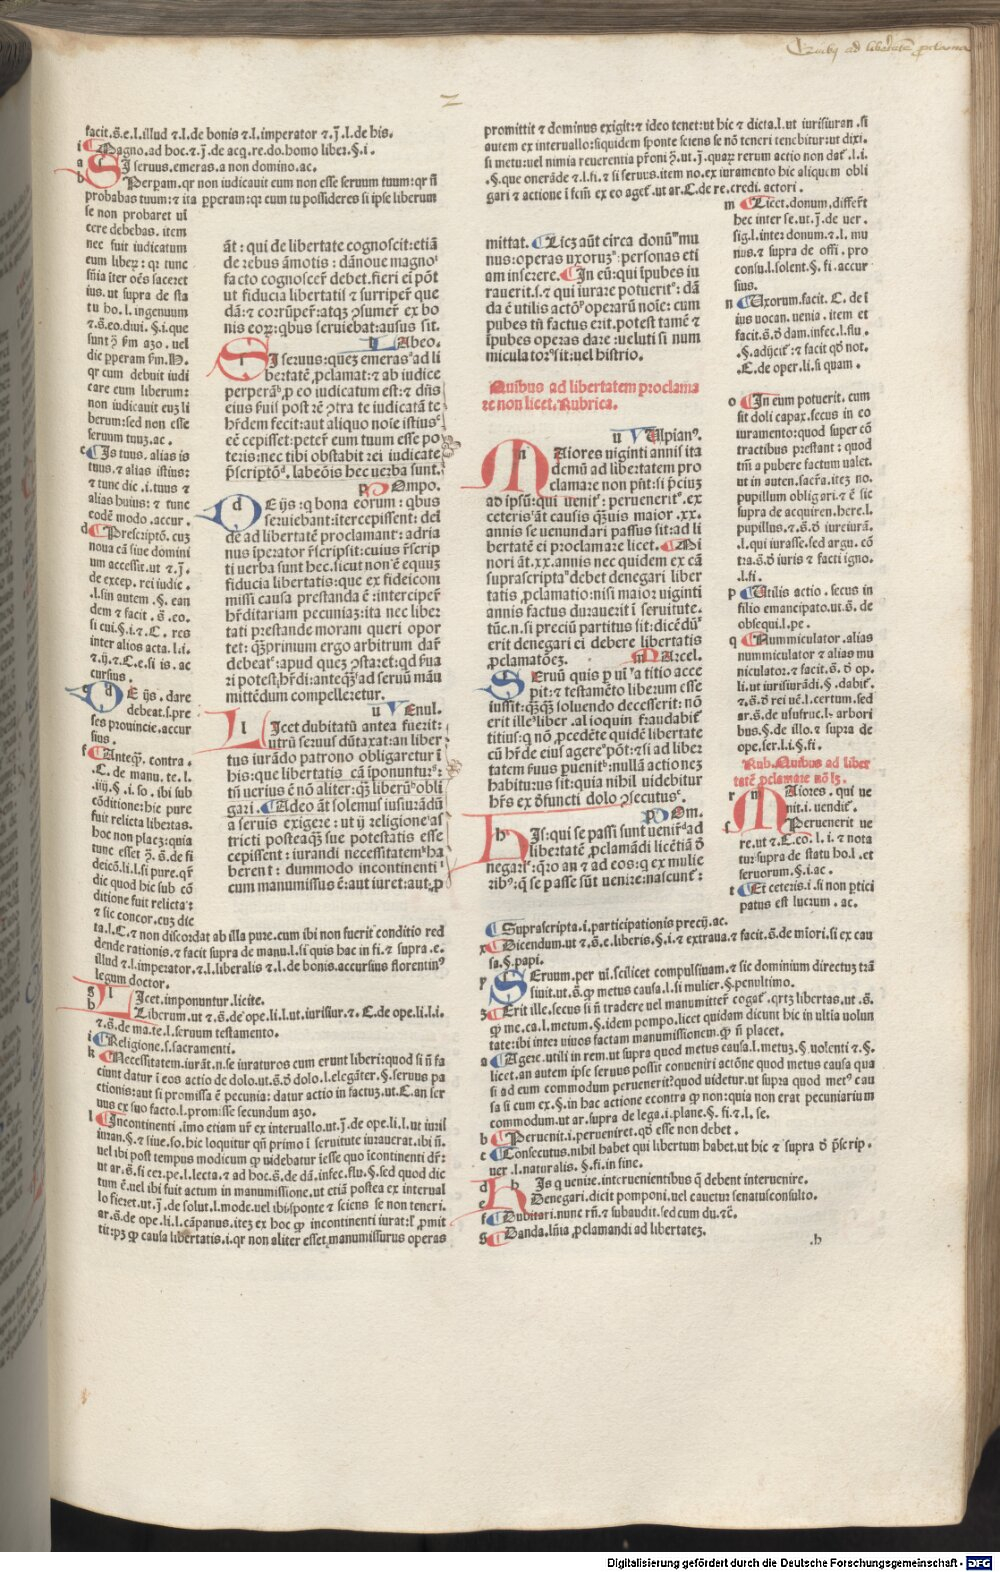 Quibus ad libertatē ꝓclama
facit.s̄.e.l.illud ⁊.l.de bonis ⁊.l.imperator ⁊.j̄.l.de his.
Magno.ad hoc.⁊.j̄.de acq.re.do.homo liber.§.i.
SI seruus.emeras.a non domino.ac.
Perpam.qr non iudicauit eum non esse seruum tuum:qr n̄
probabas tuum:⁊ ita pperam:qr cum tu possideres si ipse liberum
se non probaret ui
cere debebas.item
nec fuit iudicatum
eum liberꝫ:qr tunc
care eum liberum:
non iudicauit euꝫ li
berum:sed non esse
seruum tuuꝫ.ac.
Is tuus.alias is
tuus.⁊ alias istius:
⁊ tunc dic.i.tuus ⁊
alias huius:⁊ tunc
codē modo.accur.
Prescriptō.cuꝫ
noua cā siue domini
um accessit.ut ⁊.j̄.
de excep.rei iudic.
.l.sin autem.§.ean
dem ⁊ facit.s̄.eo.
si cui.§.i.⁊.C.res
inter alios acta.l.i.
⁊.ij.⁊.C.e.si is.ac
cursius.
DE ijs.dare
debeat.s.pre
ses prouincie.accur
sius.
Anteqꝫ.contra.
.C.de manu.te.l.
.iiij.§.i.so.ibi sub
cōditione:hic pure
fuit relicta libertas.
hoc non placꝫ:quia
ditione fuit relicta:
⁊ sic concor.cuꝫ dic
ta.l.C.⁊ non discordat ab illa pure.cum ibi non fuerit conditio red
dende rationis.⁊ facit supra de manu.l.si quis hac in fi.⁊ supra.e.
illud ⁊.l.imperator.⁊.l.liberalis ⁊.l.de bonis.accursius florentinꝰ
legum doctor.
LIcet.imponuntur.licite.
Liberum.ut ⁊.s̄.de ope.li.l.ut.iurisiur.⁊.C.de ope.li.l.i.
⁊.s̄.de ma.te.l.seruum testamento.
Religione.s.sacramenti.
Necessitatem.iurāt.n.se iuraturos cum erunt liberi:quod si n̄ fa
ciunt datur ī eos actio de dolo.ut.s̄.ꝺ dolo.l.elegāter.§.seruus pa
ctionis:aut si promissa ē pecunia:datur actio in factuꝫ.ut.C.an ser
uus ex suo facto.l.promisse secundum aꝫo.
Incontinenti.imo etiam ur̄ ex interuallo.ut.j̄.de ope.li.l.ut iurisi
iuran.§.⁊ siue.so.hic loquitur qn̄ primo ī seruitute iurauerat.ibi n̄.
uel ibi post tempus modicum qꝫ uidebatur īesse quo īcontinenti dr̄:
ut ar.s̄.si cer.pe.l.lecta.⁊ ad hoc.s̄.de dā.infec.flu.§.sed quod dic
tum ē.uel ibi fuit actum in manumissione.ut etiā postea ex interual
lo fieret.ut.j̄.de solut.l.mode.uel ibi.sponte ⁊ sciens se non teneri.
ar.s̄.de ope.li.l.cāpanus.iteꝫ ex hoc qꝫ incontinenti iurat:ꝓmit
tit:pꝫ qꝫ causa libertatis.i.qr non aliter esset manumissurus operas
āt:qui de libertate cognoscit:etiā
de rebus āmotis:dānoue magnoⁱ
facto cognoscer̄ debet.fieri ei pōt
ut fiducia libertatis ⁊ surriper̄ que
dā:⁊ corrūper̄:atqꝫ ꝯsumer̄ ex bo
nis eoꝝ:qbus seruiebat:ausus sit.
Labeo.
SI seruus:quem emerasᵃ ad li
bertatē ꝓclamat:⁊ ab iudice
perperāᵇ ꝓ eo iudicatum est:⁊ dn̄s
eius serui post rē ꝯtra te iudicatā te
hr̄dem fecit:aut aliquo noīe istiusᶜ
eē cepisset:peter̄ eum tuum esse po
teris:nec tibi obstabit rei iudicate
p̄scriptōᵈ.labeōis hec uerba sunt.
Pompo.
DE ijs:q bona eorum:qbus
seruiebant:ītercepissent:dei
de ad libertatē proclamant:adria
nus īperator r̄scripsit:cuius r̄scrip
ti uerba sunt hec.sicut non ē equuꝫ
fiducia libertatis:que ex fideicom
missi causa prestanda ē:interciper̄
hr̄ditariam pecuniaꝫ:ita nec liber
tati prestande moram queri opor
tet:qꝫprimum ergo arbitrum dar̄
debeatᵉ:apud queꝫ ꝯstaret:qd sua
ri potest hr̄di:anteqꝫᶠ ad seruū manu
mittēdum compelleretur.
Venul.
LIcet dubitatū antea fuerit:
utrū seruus dūtaxat:an liber
tus iurādo patrono obligaretur ī
his:que libertatis cā īponunturᵍ:
tū uerius ē nō aliter:qꝫ liberūʰ obli
gari.Adeo āt solemus iusiurādū
a seruis exigere:ut ij religioneⁱ as
tricti posteaqꝫ sue potestatis esse
cepissent:iurandi necessitatemᵏ ha
berent:dummodo incontinentiˡ
cum manumissus ē:aut iuret:aut ꝓ
promittit ⁊ dominus exigit:⁊ ideo tenet:ut hic ⁊ dicta.l.ut iurisiuran.si
autem ex interuallo:siquidem sponte sciens se nō teneri tenebitur:ut dixi.
si metu:uel nimia reuerentia pr̄oni q̄.ut.j̄.quaꝝ rerum actio non dat̄.l.i.
.§.que onerāde ⁊.l.fi.⁊ si seruus.item no.ex iuramento hic aliquem obli
gari ⁊ actione ī factum ex eo aget̄.ut ar.C.de re.credi.actori.
mittat.Licꝫ aūt circa donūᵐ mu
nus:operas uxoruꝫⁿ:personas eti
am inserere.In eū:qui īpubes iu
rauerit.s.⁊ qui iurare potueritᵒ:dā
da ē utilis actōᵖ operarū noīe:cum
pubes tn̄ factus erit.potest tamē ⁊
īpubes operas dare:ueluti si num
miculatorᑫ sit:uel histrio.
Quibus ad libertatem proclama
re non licet.Rubrica.
Vlpianꝰ.
MAiores uiginti annis ita
demū ad libertatem pro
clamare non pn̄t:si p̄ciuꝫ
ad ipsū:qui uenitʳ:peruenerit.ex
ceteris āt causis qꝫuis maior.xx.
annis se uenundari passus sit:ad li
bertatē ei proclamare licet.Mi
nori āt.xx.annis nec quidem ex cā
suprascripta debet denegari liber
tatis ꝓclamatio:nisi maior uiginti
annis factus durauerit ī seruitute.
tūc.n.si preciū partitus sit:dicēdū
erit denegari ei debere libertatis
ꝓclamatōeꝫ.
Marcel.
SEruū quis p uīʸ a titio acce
pit:⁊ testamēto liberum esse
iussit:qꝫqꝫ soluendo decesserit:nō
erit ille liber.alioquin fraudabit̄
titius:q nō ꝓcedēte quidē libertate
cū hr̄de eius agereᵃ pōt:⁊ si ad liber
tatem suus ꝑuenit:nullā actioneꝫ
habiturus sit:quia nihil uidebitur
hr̄s ex ꝺfuncti dolo ꝯsecutus.
Pom.
HIs:qui se passi sunt uenir̄ᵈ ad
libertatē ꝓclamādi licētiā ꝺ
negari:qro an ⁊ ad eos:q ex mulie
ribꝰ:q se passe sūt uenire:nascunt̄:
Licet.donum.differt
hec inter se.ut.j̄.de uer.
sig.l.inter donum.⁊.l.mu
nus.⁊ supra de offi.pro
consu.l.solent.§.fi.accur
sius.
Uxorum.facit.C.de ī
ius uocan.uenia.item et
facit.s̄.ꝺ dam.infec.l.flu.
.§.adijcit̄:⁊ facit qd not.
.C.de oper.li.si quam.
In eum potuerit.cum
sit doli capax.secus in eo
iuramento:quod super cō
tractibus prestant:quod
tn̄ a pubere factum ualet.
pupillum obligari.⁊ ē sic
supra de acquiren.here.l.
pupillus.⁊.s̄.ꝺ iureiurā.
.l.qui iurasse.sed argu.cō
tra.s̄.ꝺ iuris ⁊ facti igno.
.l.fi.
Utilis actio.secus in
filio emancipato.ut.s̄.de
obsequi.l.pe.
Nummiculator.alias
nummiculator ⁊ alias mu
niculator.⁊ facit.s̄.ꝺ op.
li.ut iurisiurādi.§.dabit̄.
⁊.s̄.ꝺ rei uē.l.certum.sed
ar.s̄.de usufruc.l.arbori
bus.§.de illo.⁊ supra de
ope.ser.l.i.§.fi.
Rub.Quibus ad liber
tatē ꝓclamare nō lꝫ.
MAiores.qui ue
nit.i.uendit̄.
Peruenerit ue
re.ut ⁊.C.eo.l.i.⁊ nota
tur supra de statu ho.l.et
seruorum.§.i.ac.
Et ceteris.i.si non ptici
patus est lucrum.ac.
Suprascripta.i.participationis precij.ac.
Dicendum.ut ⁊.s̄.e.liberis.§.i.⁊ extraua.⁊ facit.s̄.de miori.si ex cau
sa.§.papi.
SEruum.per uī.scilicet compulsiuam.⁊ sic dominium directuꝫ trā
siuit.ut.s̄.qꝫ metus causa.l.si mulier.§.penultimo.
Erit ille.secus si n̄ tradere uel manumitter̄ cogat̄.qrtꝫ libertas.ut.s̄.
qꝫ me.ca.l.metum.§.idem pompo.licet quidam dicunt hic in ultia uolun
tate:ibi inter uiuos factam manumissionem.qꝫ n̄ placet.
Agere.utili in rem.ut supra quod metus causa.l.metuꝫ.§.uolenti ⁊.§.
licet.an autem ipse seruus possit conueniri actiōne quod metus causa qua
si ad eum commodum peruenerit?quod uidetur.ut supra quod metꝰ cau
sa si cum ex.§.in hac actione econtra qꝫ non:quia non erat pecuniarium
commodum.ut ar.supra de lega.i.plane.§.fi.⁊.l.se.
Peruenit.i.perueniret.qd esse non debet.
Consecutus.nihil habet qui libertum habet.ut hic ⁊ supra ꝺ p̄scrip.
uer.l.naturalis.§.fi.in fine.
HIs q uenire.interuenientibus q̄ debent interuenire.
Denegari.dicit pomponi.uel cauetur senatusconsulto.
Dubitari.nunc rn̄.⁊ subaudit.sed cum du.⁊c̄.
Danda.lnīa ꝓclamandi ad libertateꝫ.
.h
Digitalisierung gefördert durch die Deutsche Forschungsgemeinschaft - DFG